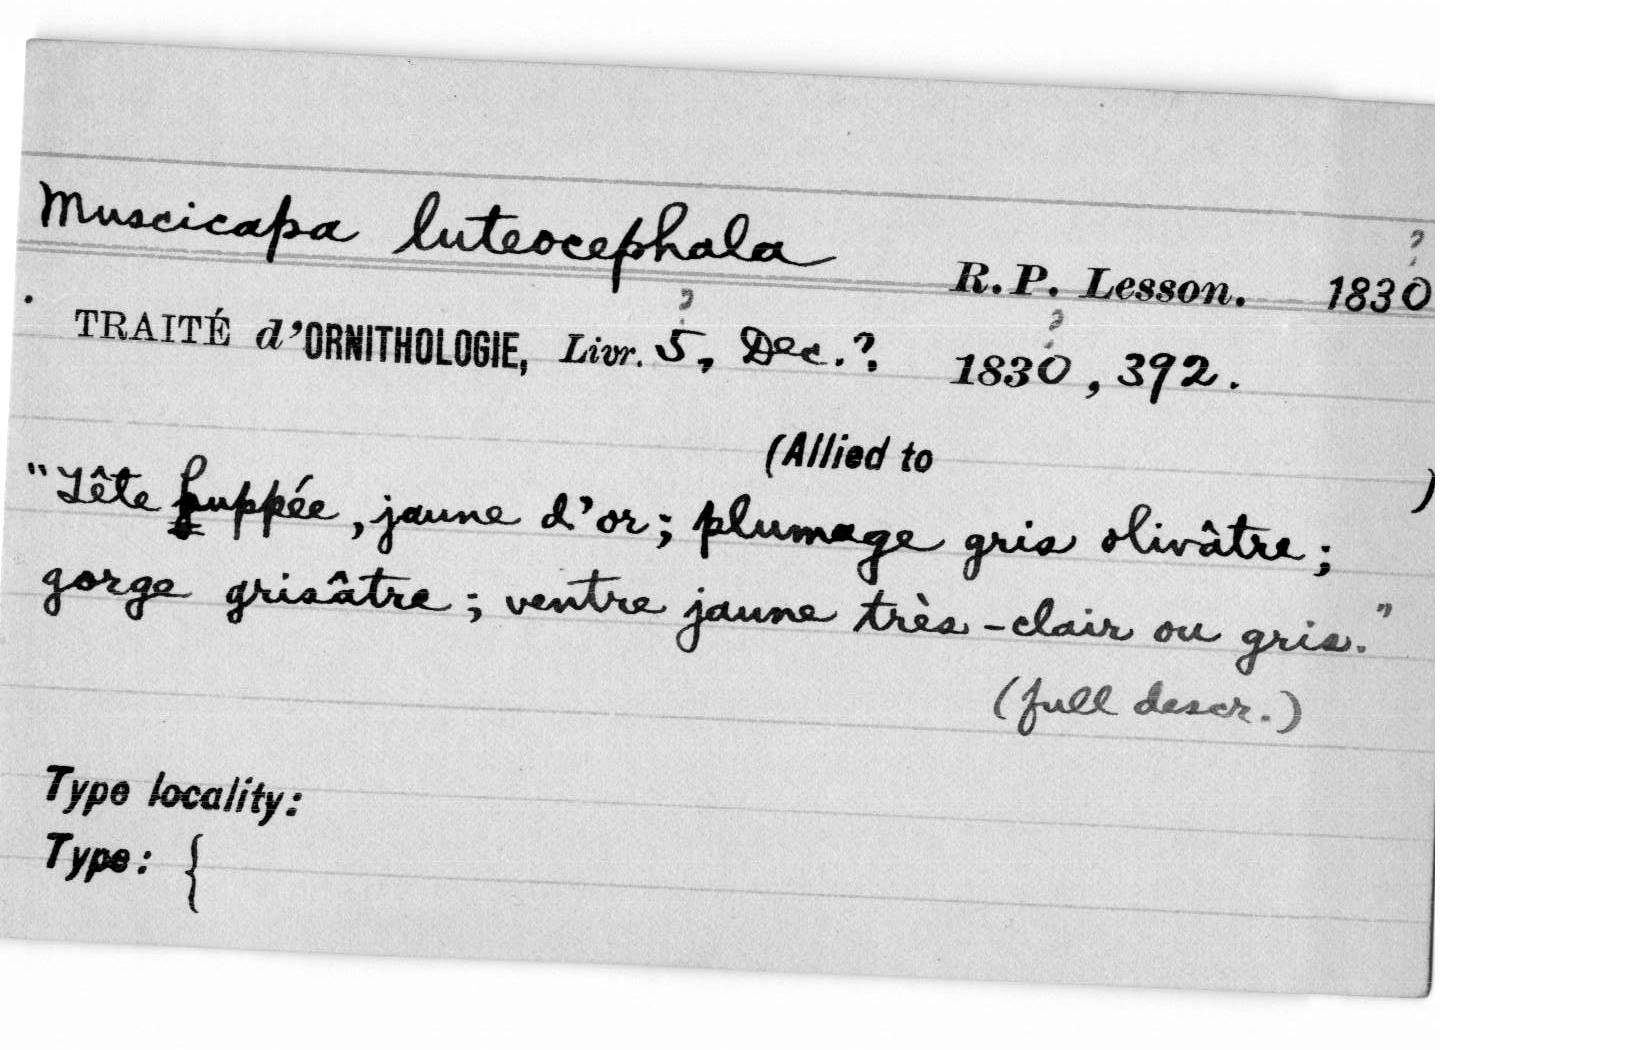 Muscicapa luteocephala R.P. Lesson. 1830?
TRAITÉ d'ORNITHOLOGIE, Livr. 5?, Dec.?. 1830?, 392.
(Allied to )
"Tête huppée, jaune d'or; plumage gris olivâtre;
gorge grisâtre; ventre jaune très-clair ou gris."
(full descr.)
Type locality:
Type: {